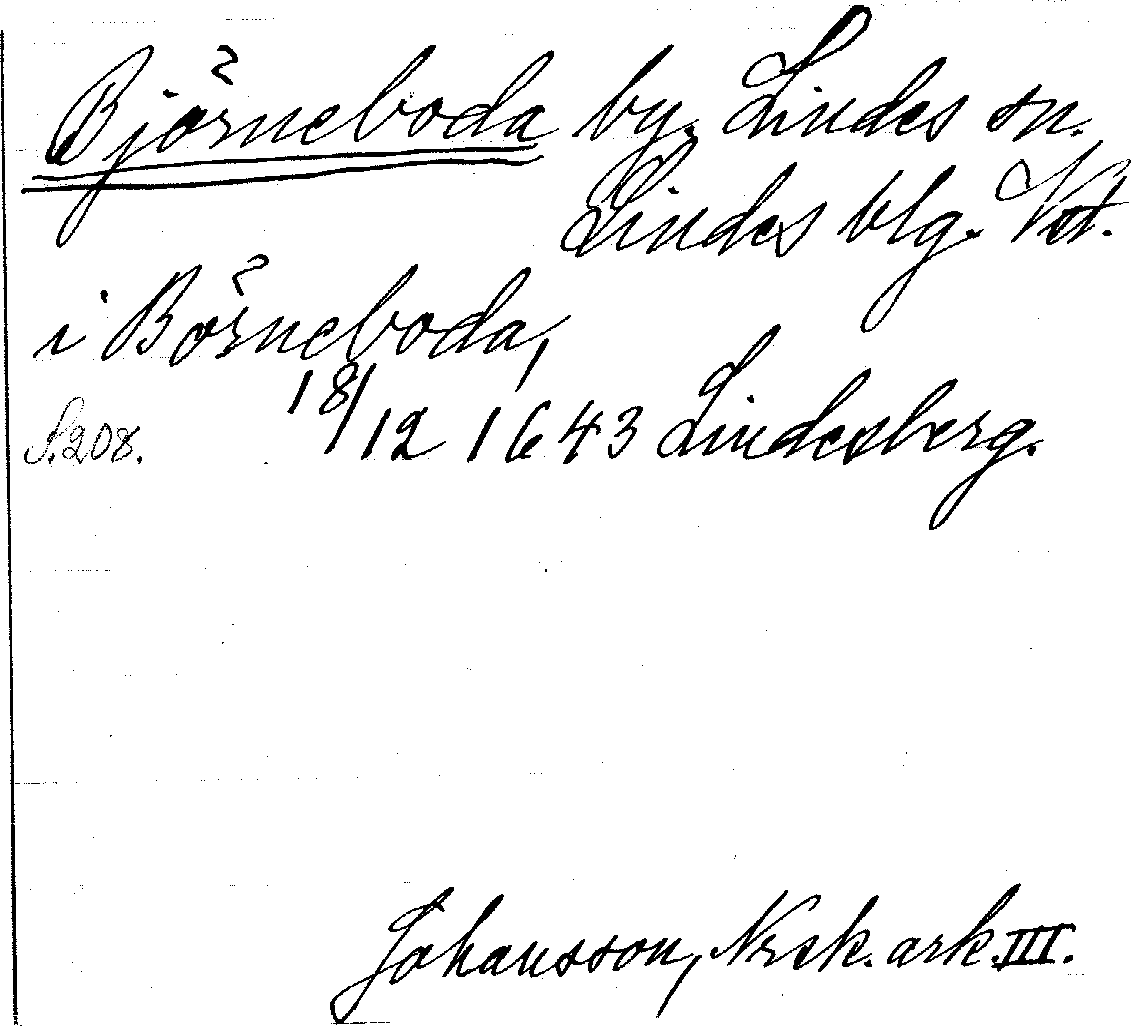 Björneboda by. Lindes sn.
Lindes blg. Vstm.
i Börneboda,
S.208. 18/12 1643 Lindesberg.
Johansson, Norsk. ark. III.